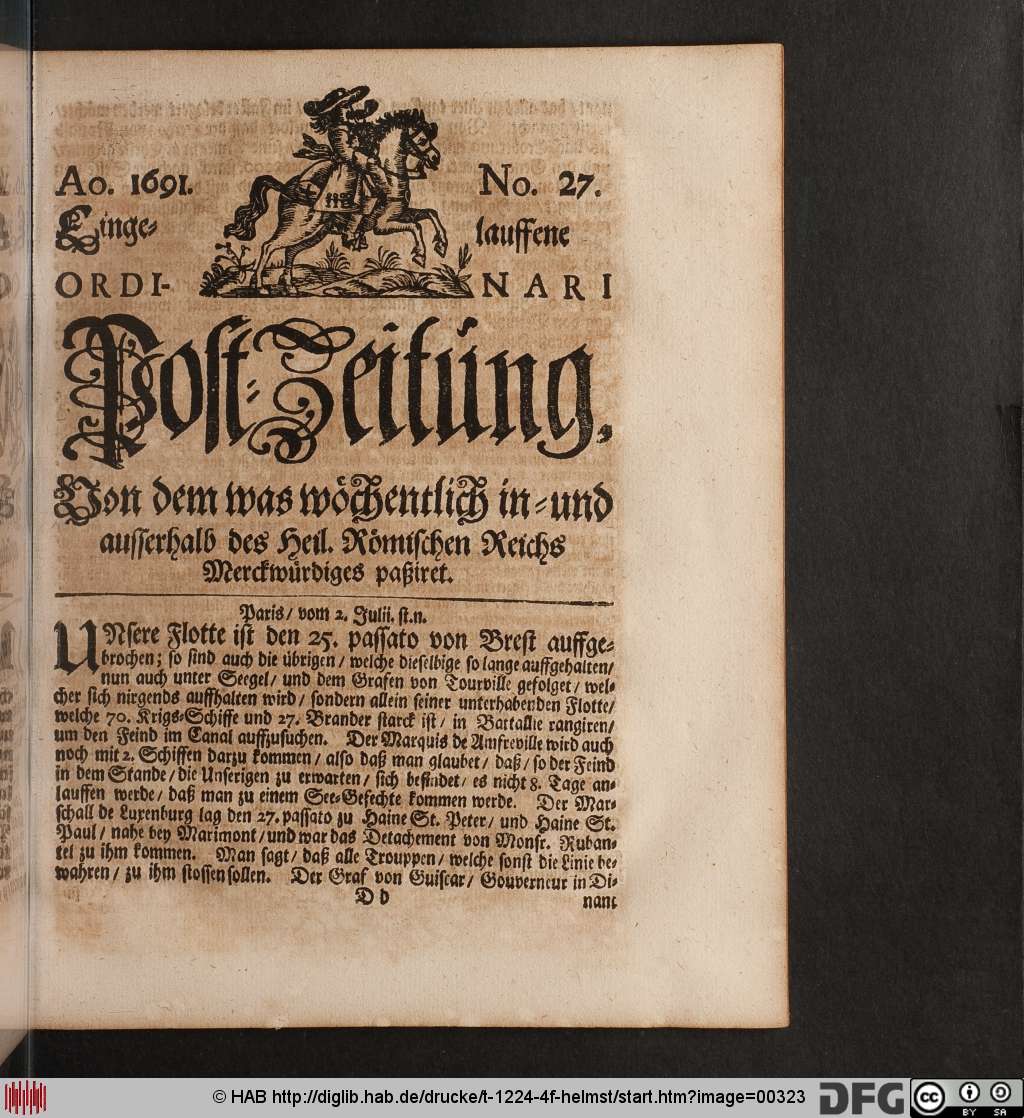 Ao. 1691. No. 27.
Einge- lauffene
ORDI- NARI
Post-Zeitung,
Von dem was wöchentlich in- und
ausserhalb des Heil. Römischen Reichs
Merckwürdiges paßiret.
Paris/ vom 2. Julii. st.n.
UNsere Flotte ist den 25. passato von Brest auffge-
brochen; so sind auch die übrigen/ welche dieselbige so lange auffgehalten/
nun auch unter Seegel/ und dem Grafen von Tourville gefolget/ wel-
cher sich nirgends auffhalten wird/ sondern allein seiner unterhabenden Flotte/
welche 70. Krigs-Schiffe und 27. Brander starck ist/ in Battallie rangiren/
um den Feind im Canal auffzusuchen. Der Marquis de Amfreville wird auch
noch mit 2. Schiffen darzu kommen/ also daß man glaubet/ daß/ so der Feind
in dem Stande/ die Unserigen zu erwarten/ sich befindet/ es nicht 8. Tage an-
lauffen werde/ daß man zu einem See-Gefechte kommen werde. Der Mar-
schall de Luxenburg lag den 27. passato zu Haine St. Peter/ und Haine St.
Paul/ nahe bey Marimont/ und war das Detachement von Monsr. Ruban-
tel zu ihm kommen. Man sagt/ daß alle Trouppen/ welche sonst die Linie be-
wahren/ zu ihm stossen sollen. Der Graf von Guiscar/ Gouverneur in Di-
D d nant
© HAB http://diglib.hab.de/drucke/t-1224-4f-helmst/start.htm?image=00323
DFG
cc BY SA